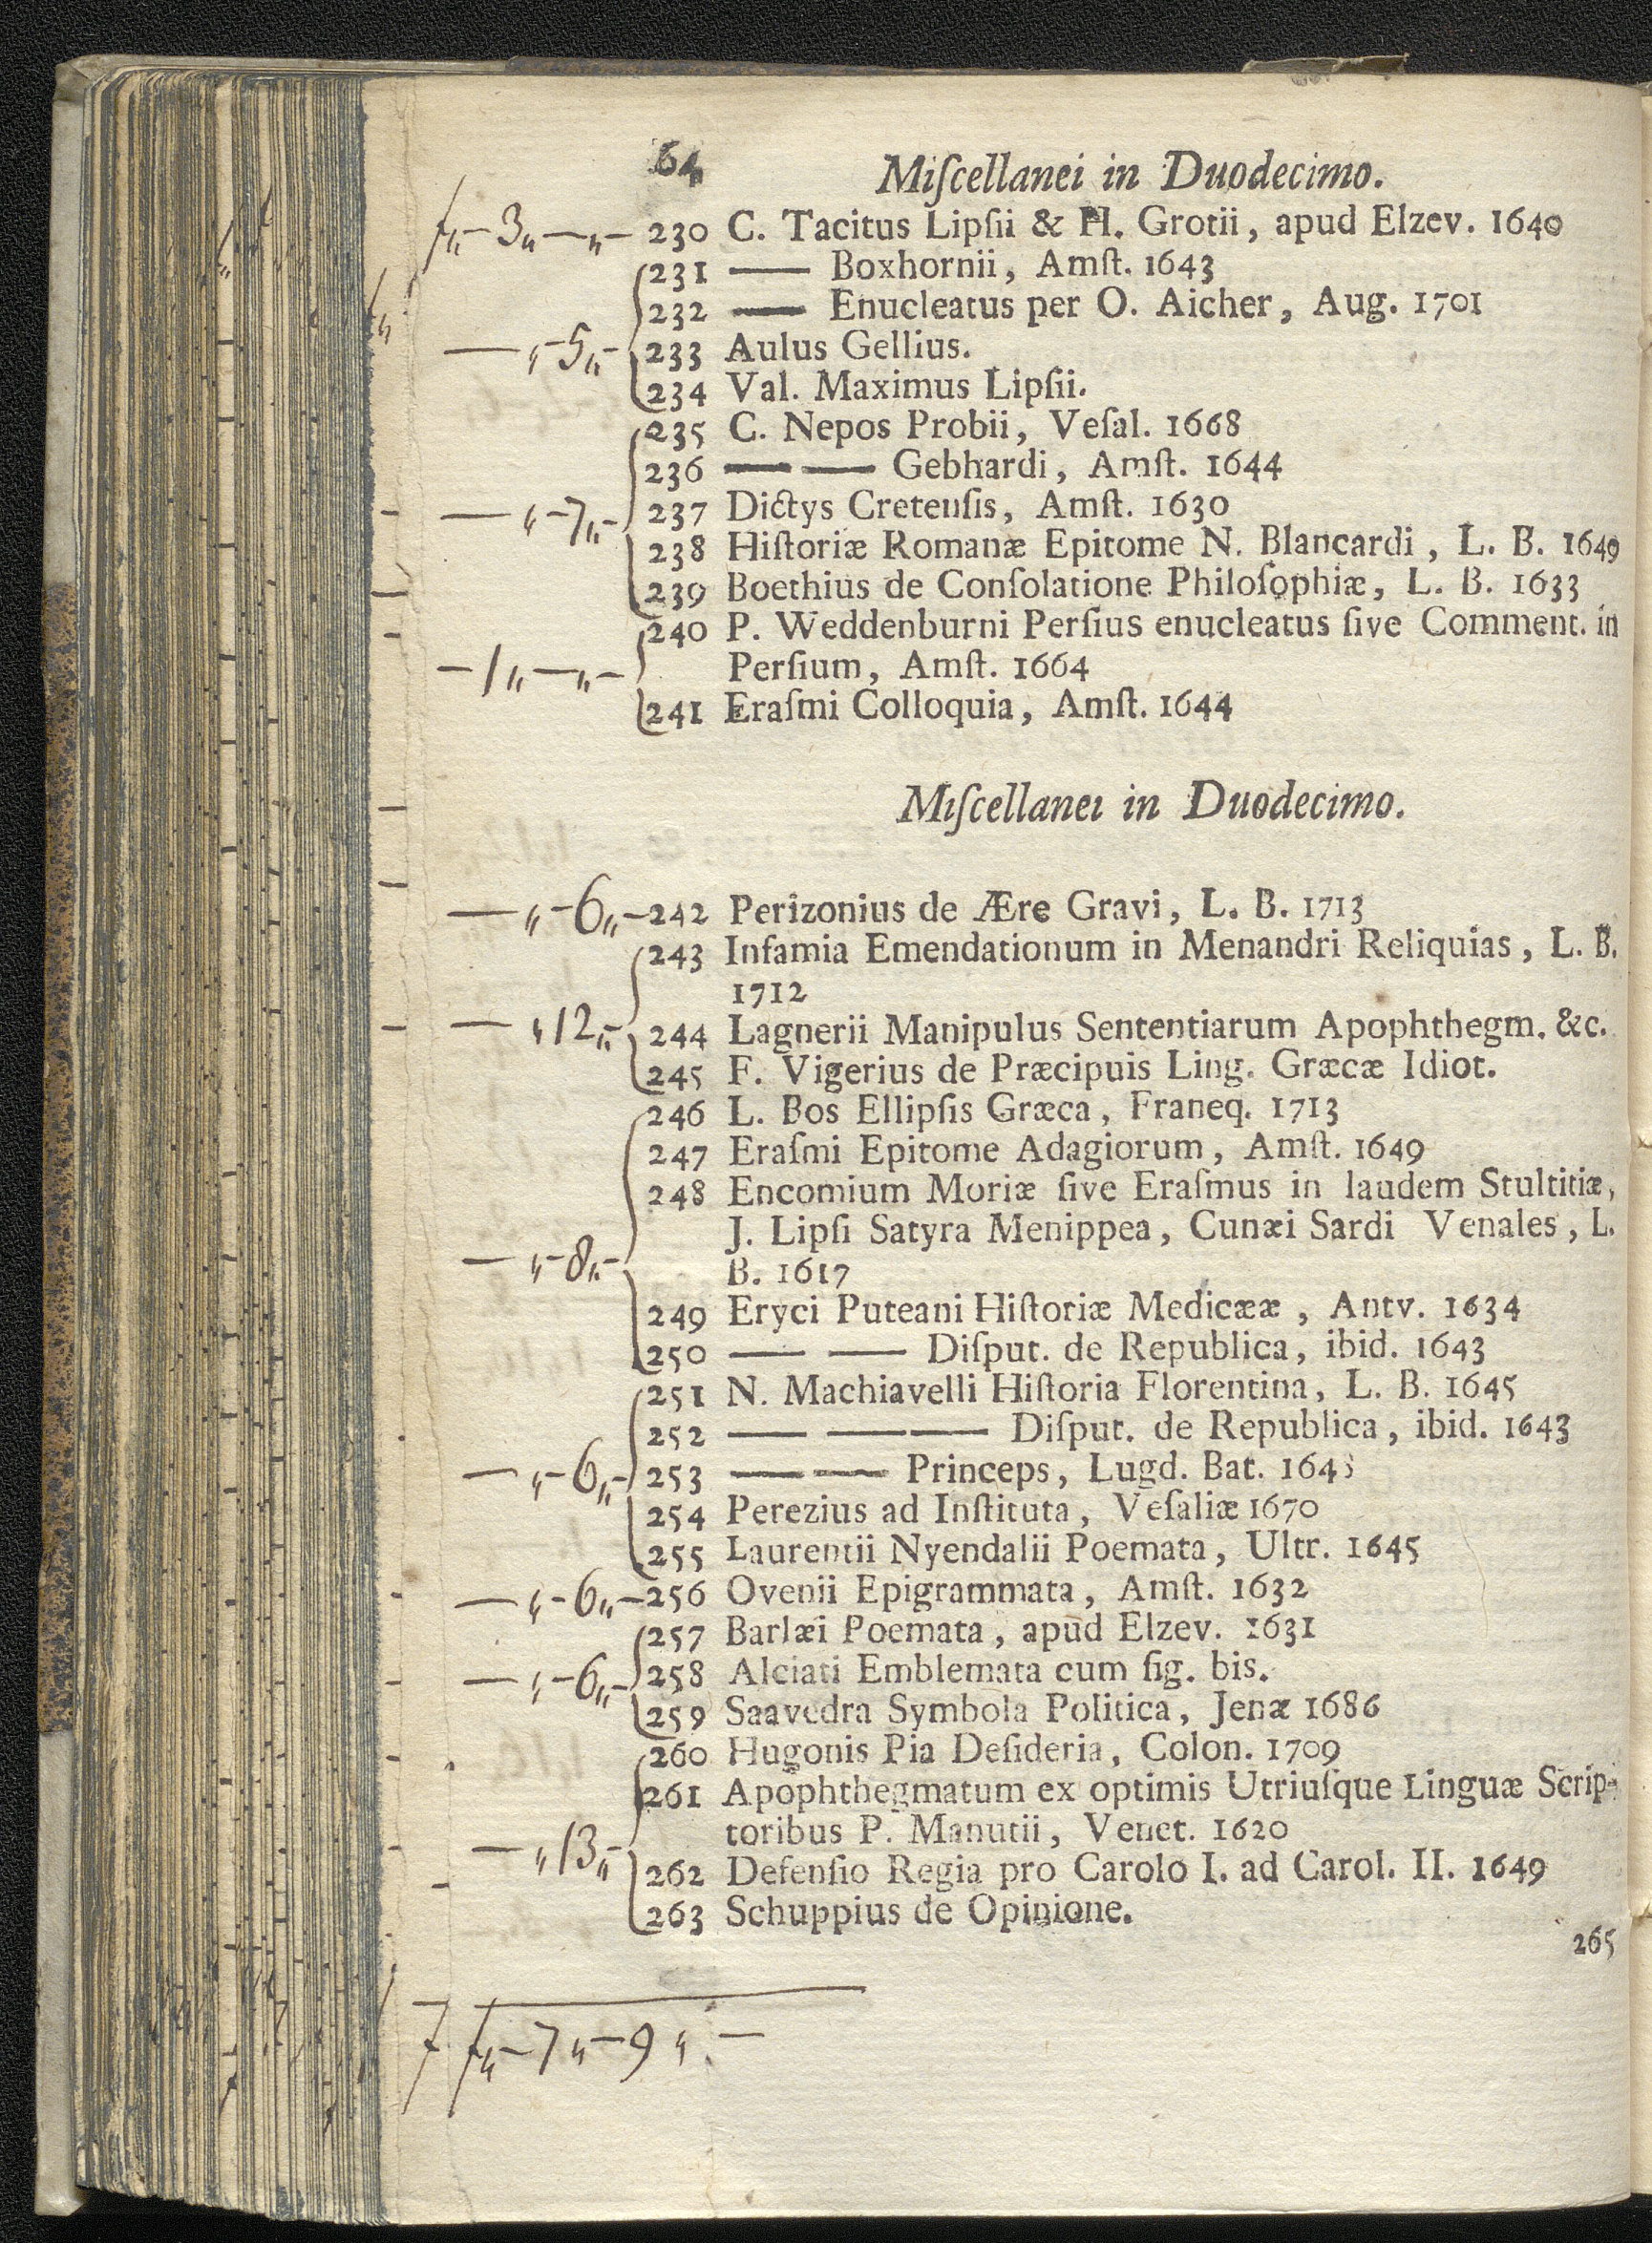 64
Miſcellanei in Duodecimo.
f„-3„—„- 230 C. Tacitus Lipſii & H. Grotii, apud Elzev. 1640
231 —— Boxhornii, Amſt. 1643
232 —— Enucleatus per O. Aicher, Aug. 1701
— „-5„- 233 Aulus Gellius.
234 Val. Maximus Lipſii.
235 C. Nepos Probii, Veſal. 1668
236 —— —— Gebhardi, Amſt. 1644
— „-7„- 237 Dictys Cretenſis, Amſt. 1630
238 Hiſtoriæ Romanæ Epitome N. Blancardi, L. B. 1649
239 Boethius de Conſolatione Philoſophiæ, L. B. 1633
240 P. Weddenburni Perſius enucleatus ſive Comment. in
-1„—„- Perſium, Amſt. 1664
241 Eraſmi Colloquia, Amſt. 1644
Miſcellanei in Duodecimo.
— „-6„- 242 Perizonius de Ære Gravi, L. B. 1713
243 Infamia Emendationum in Menandri Reliquias, L. B.
1712
— „12„- 244 Lagnerii Manipulus Sententiarum Apophthegm. &c.
245 F. Vigerius de Præcipuis Ling. Græcæ Idiot.
246 L. Bos Ellipſis Græca, Franeq. 1713
247 Eraſmi Epitome Adagiorum, Amſt. 1649
248 Encomium Moriæ ſive Eraſmus in laudem Stultitiæ,
J. Lipſi Satyra Menippea, Cunæi Sardi Venales, L.
— „-8„- B. 1617
249 Eryci Puteani Hiſtoriæ Medicææ, Antv. 1634
250 —— —— Diſput. de Republica, ibid. 1643
251 N. Machiavelli Hiſtoria Florentina, L. B. 1645
252 —— —— —— Diſput. de Republica, ibid. 1643
— „-6„- 253 —— —— Princeps, Lugd. Bat.
254 Perezius ad Inſtituta, Veſaliæ 1670
255 Laurentii Nyendalii Poemata, Ultr. 1645
— „-6„- 256 Ovenii Epigrammata, Amſt. 1632
257 Barlæi Poemata, apud Elzev. 1631
— „-6„- 258 Alciati Emblemata cum fig. bis.
259 Saavedra Symbola Politica, Jenæ 1686
260 Hugonis Pia Deſideria, Colon. 1709
261 Apophthegmatum ex optimis Utriuſque Linguæ Scrip-
— „13„- toribus P. Manutii, Venet. 1620
262 Defenſio Regia pro Carolo I. ad Carol. II. 1649
263 Schuppius de Opinione.
265
f„-7„-9„-